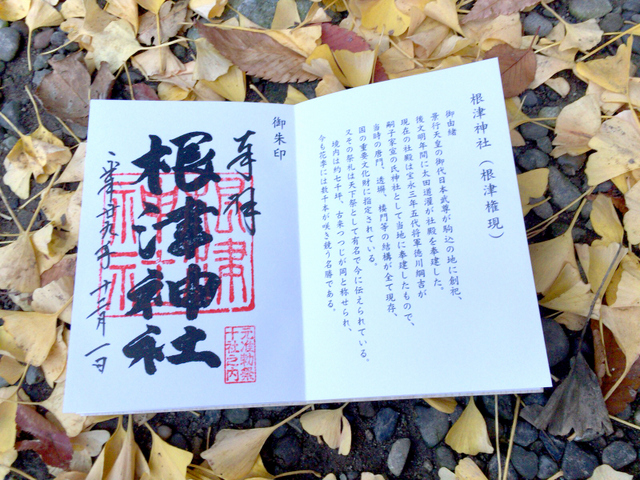 根津神社（根津権現）
御由緒
景行天皇の御代日本武尊が駒込の地に創祀、
後文明年間に太田道灌が社殿を奉建した。
現在の社殿は宝永三年五代将軍徳川綱吉が
嗣子家宣の氏神社として当地に奉建したもので、
当時の唐門、透塀、楼門等の結構が全て現存、
国の重要文化財に指定されている。
又その祭礼は天下祭として有名で今に伝えられている。
境内は約七千坪、古来つつじが岡と称せられ、
今も花季には数千本が咲き競う名勝である。
御朱印
奉拝
根津神社
根津神社
元准勅祭
十社之内
平成廿九年十二月一日